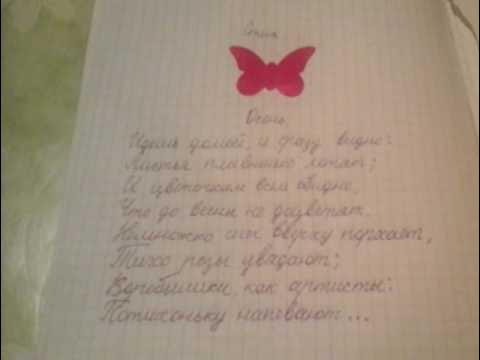 Стих
Осень.
Идёшь домой, и сразу видно:
Листья плавненько летят;
И цветочкам всем обидно,
Что до весны не доцветят.
Немножко снег сверху порхает,
Тихо розы увядают;
Воробышки, как артисты:
Потихоньку напевают...